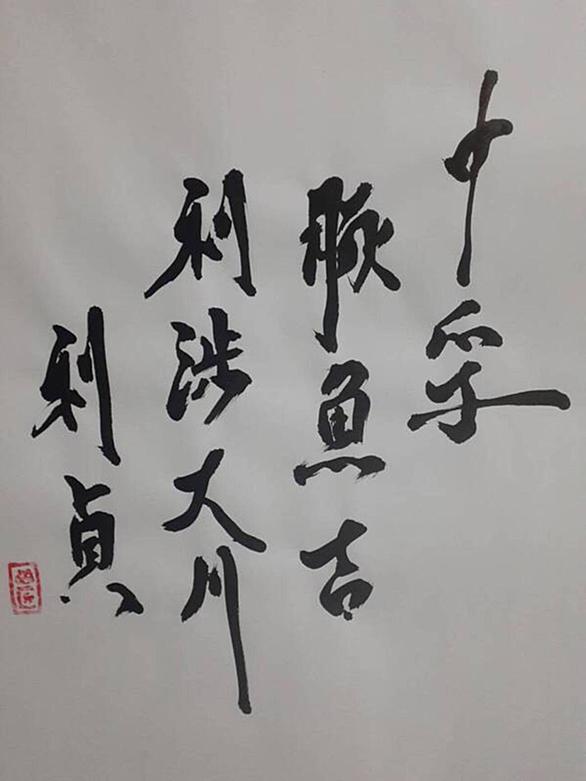 中孚
豚魚吉
利涉大川
利貞